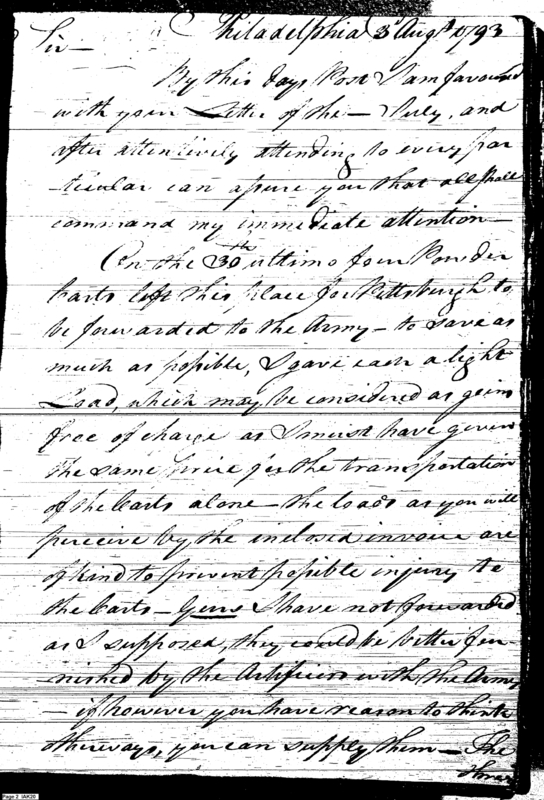 Philadelphia 3d Augt. 1793
Sir —
By this days Post I am favoured
with your Letter of the — July, and
after attentively attending to every par
-ticular can assure you that all shall
command my immediate attention —
On the 30th ultimo four Powder
Carts left this place for Pittsburgh to
be forwarded to the Army — to save as
much as possible, I gave each a light
Load, which may be considered as going
free of charge as I must have given
the same Price for the transportation
of the Carts alone — the loads as you will
perceive by the inclosed invoice are
of kind to prevent possible injury to
the Carts — Gears I have not forwarded
as I supposed, they could be better fur-
nished by the Artificers with the Army
— if however you have reason to think
otherways, you can supply them — The
Page 2 IAK20